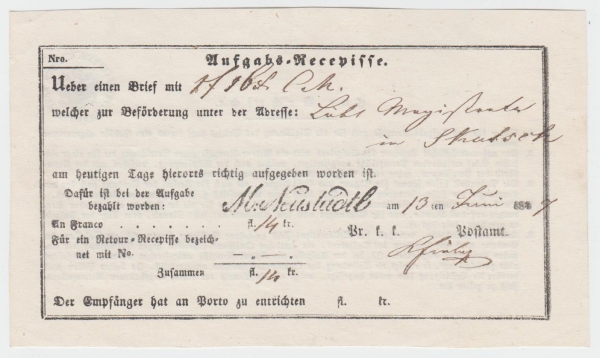 Nro.
Aufgabs-Recepisse.
Ueber einen Brief mit 1f 16 C.M.
welcher zur Beförderung unter der Adresse: Löbl Magistrate
in Skutsch
am heutigen Tage hierorts richtig aufgegeben worden ist.
Dafür ist bei der Aufgabe
bezahlt worden: M. Neustadtl am 13 ten Juni 184 7
An Franco . . . . . . . fl. 14 kr. Pr. k. k. Postamt.
Für ein Retour-Recepisse bezeich-
net mit No. —.—.—
Zusammen fl. 14 kr.
Der Empfänger hat an Porto zu entrichten fl. kr.